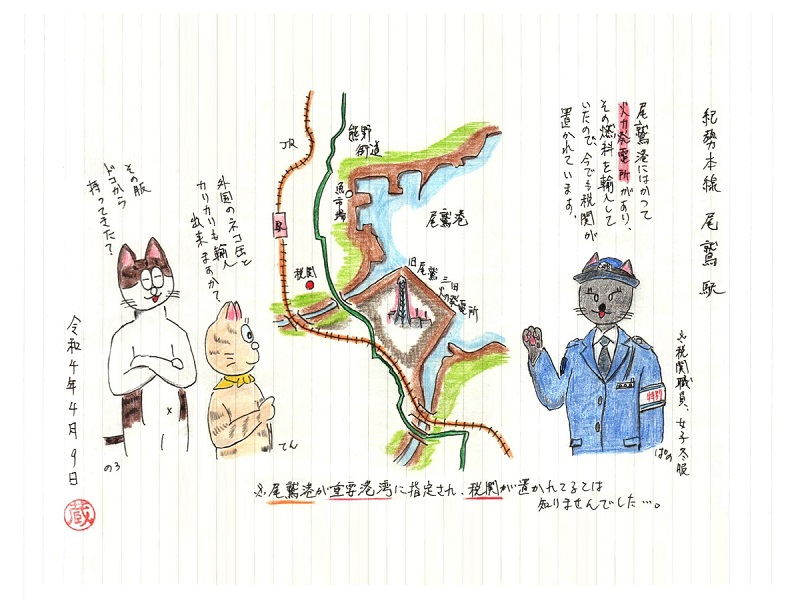 紀勢本線 尾鷲駅
尾鷲港にはかつて
火力発電所があり、
その燃料を輸入して
いたので、今でも税関が
置かれています。
※税関職員、女子冬服
ぱめ
特別
JR
熊野
街道
魚市場
尾鷲港
駅
税関
旧尾鷲
三田
火力発電所
外国のネコ缶と
カリカリも輸入
出来ますか?
てん
その服
ドコから
持ってきた?
のろ
令和4年4月9日
蔵
※尾鷲港が重要港湾に指定され、税関が置かれてるとは
知りませんでした…。